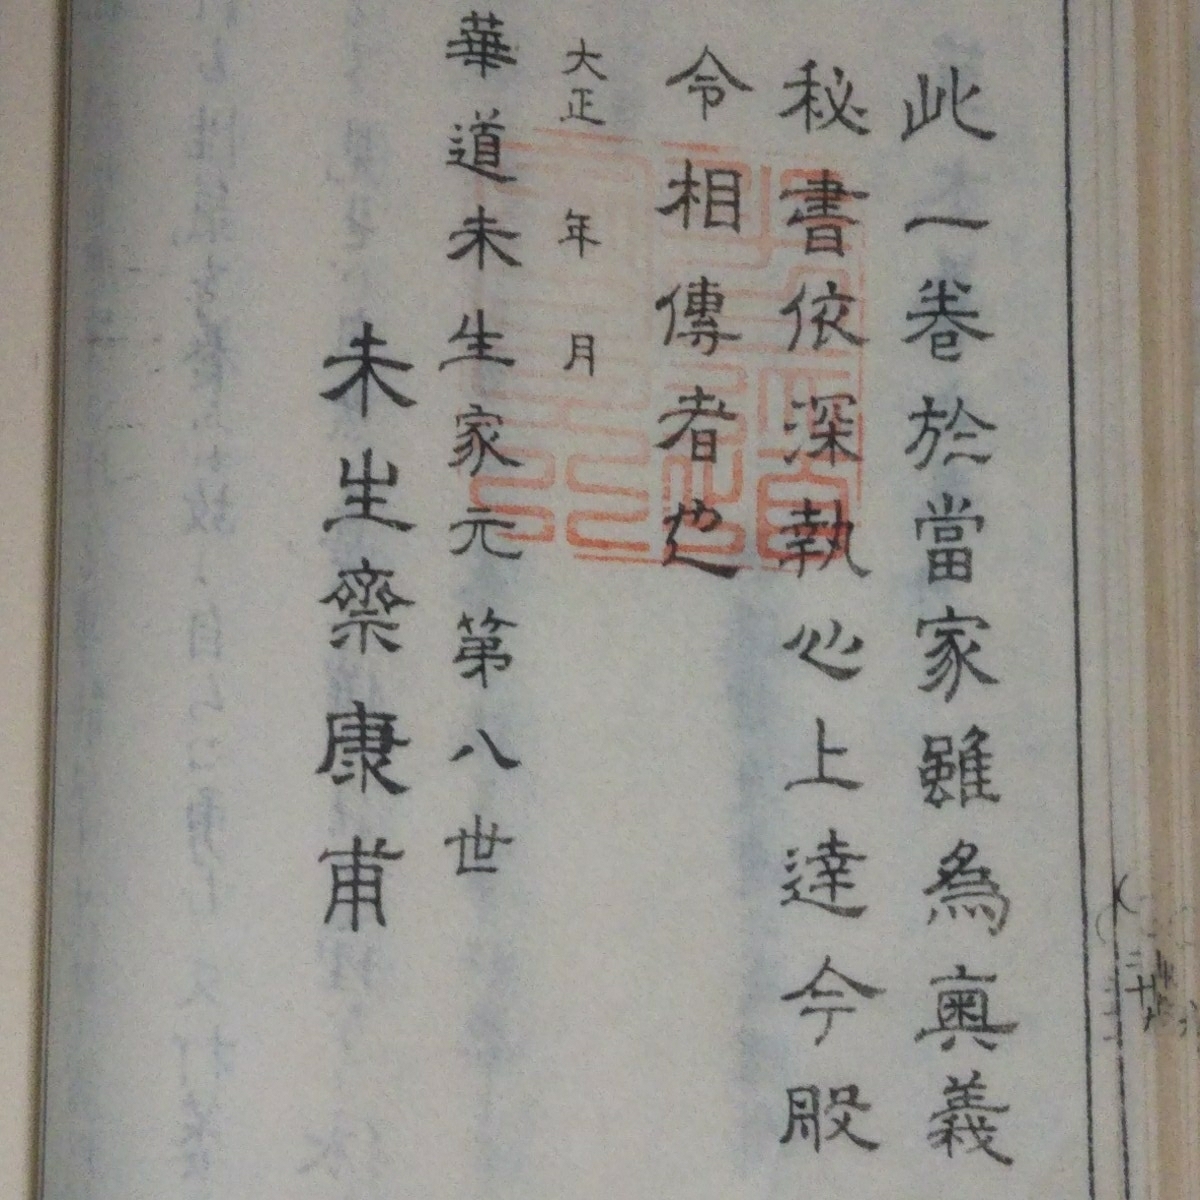 此一卷於當家雖爲奧義
秘書依深執心上達今般
令相傳者也
大正 年 月
華道未生家元第八世
未生齋康甫